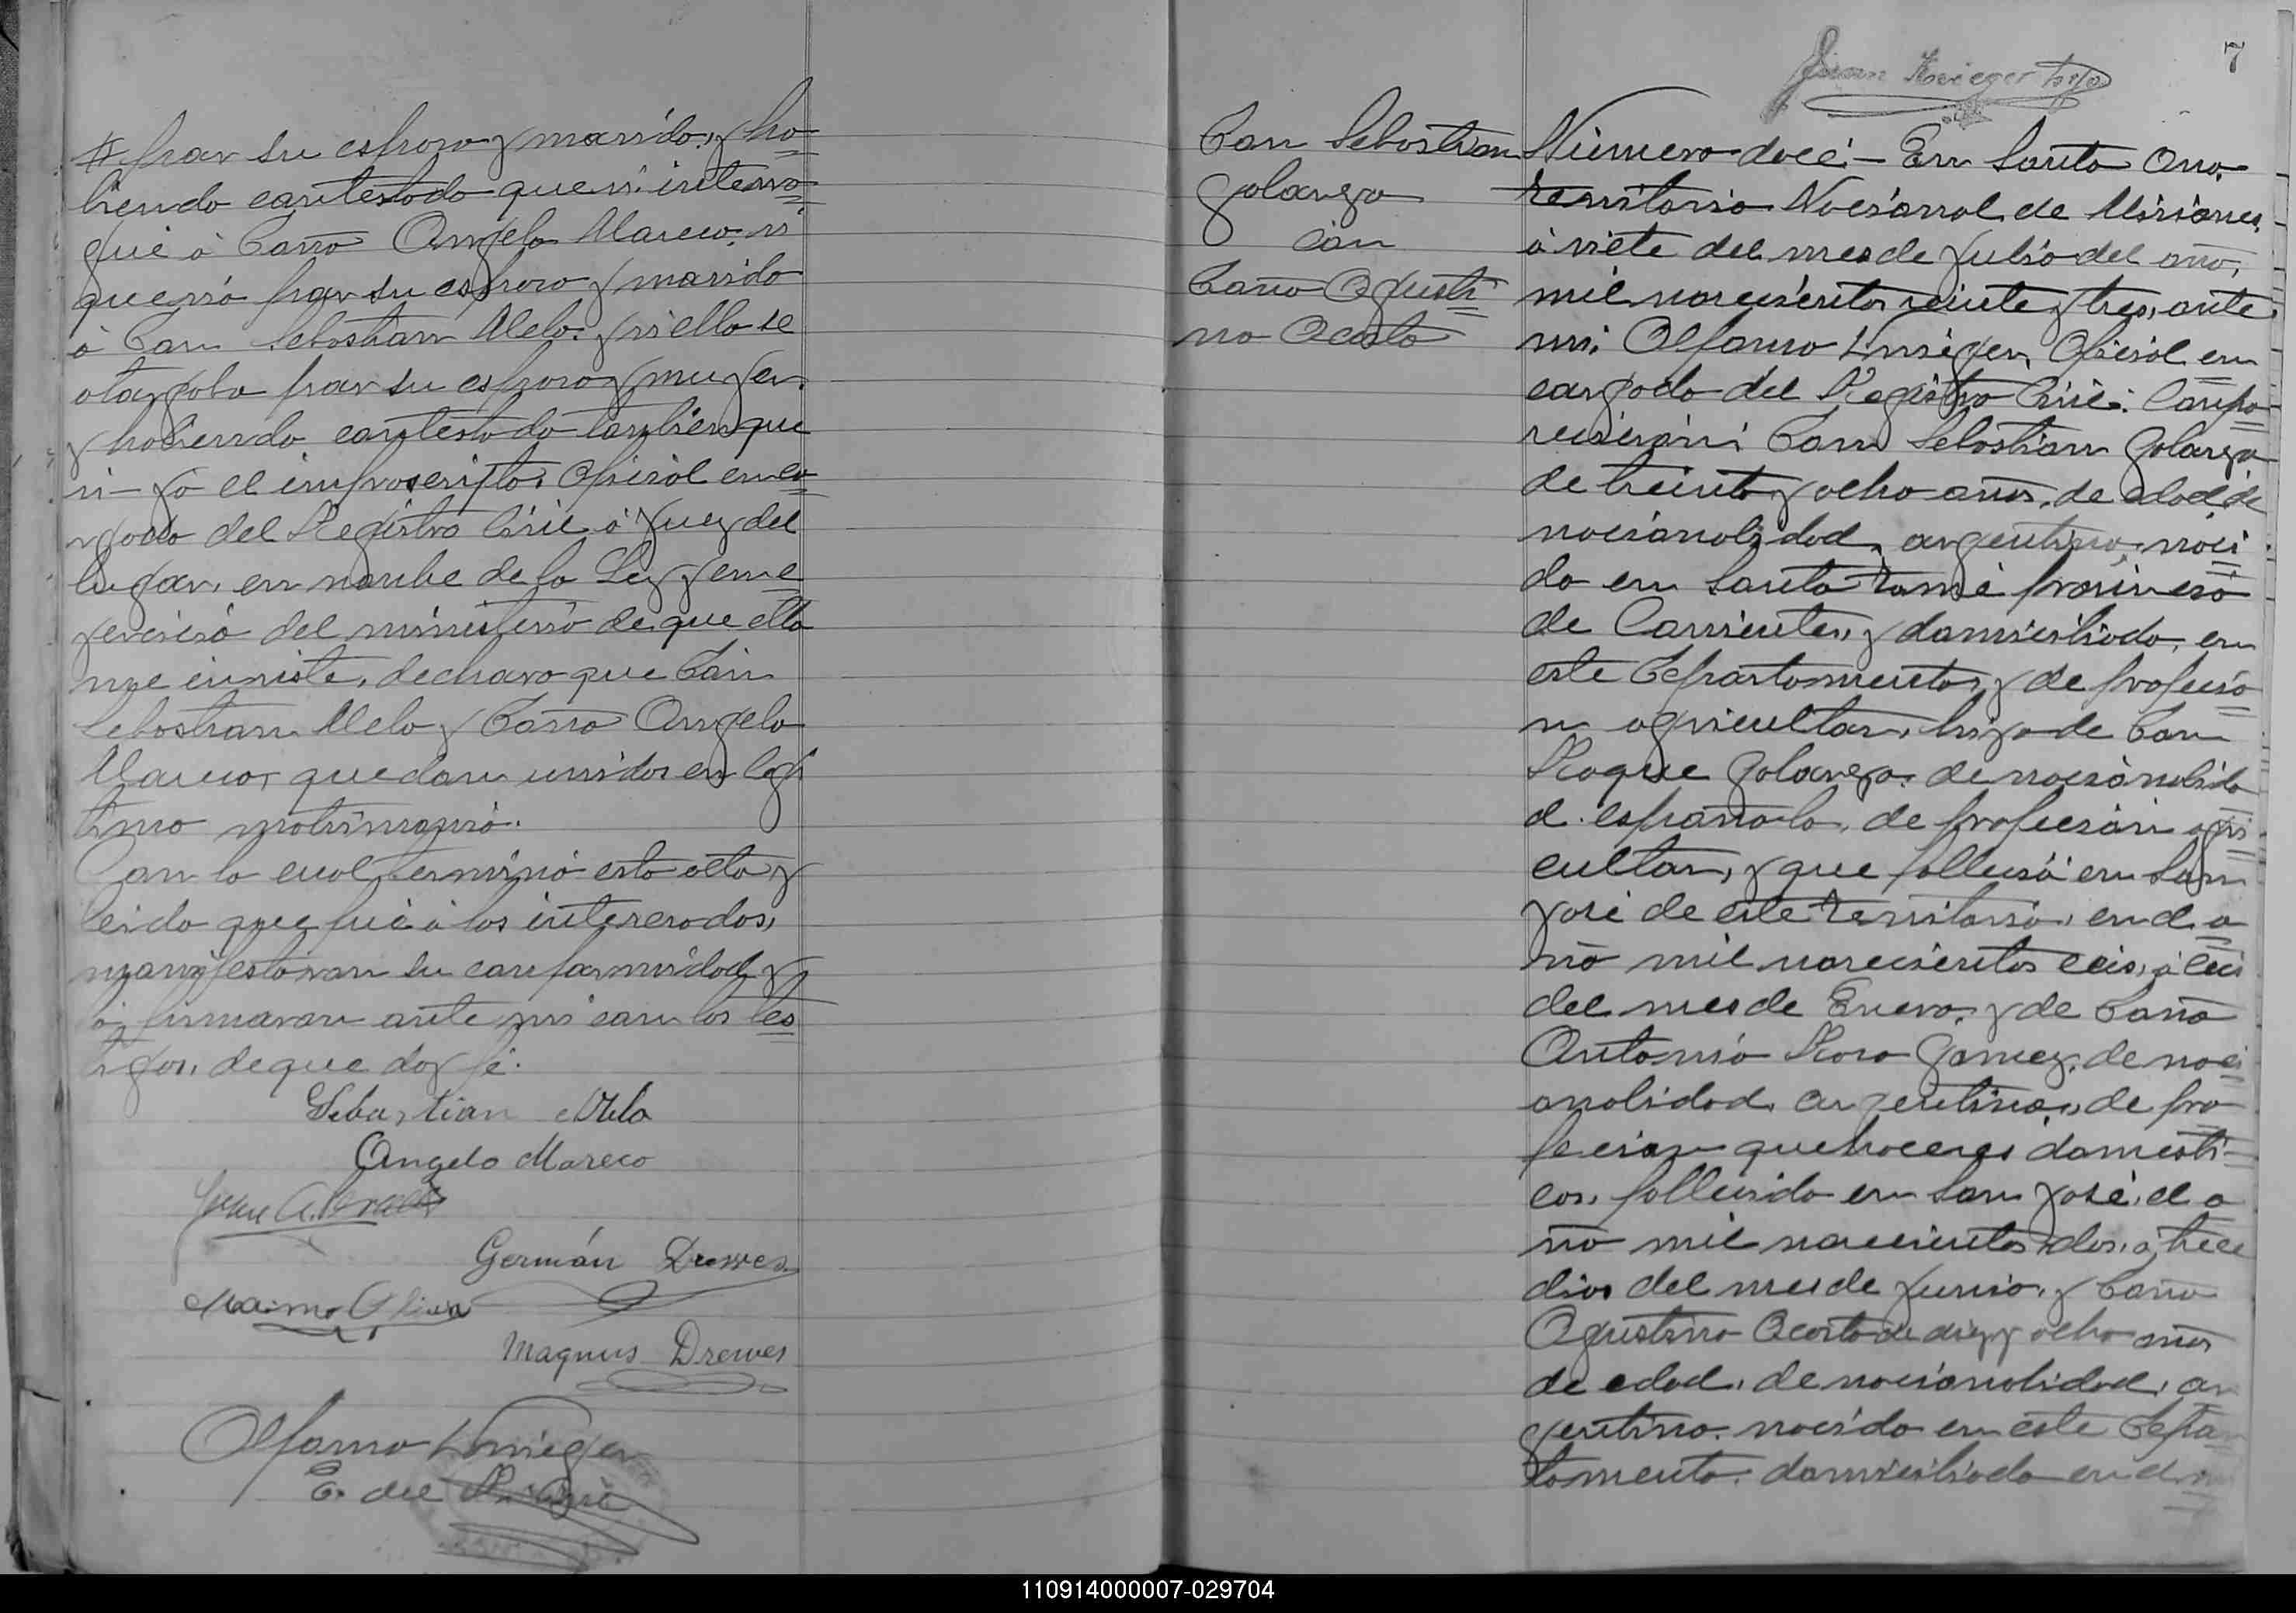 por su esposo y marido, y ha
biendo contestado que si interro
gué á Doña Angela Mareco, si
queria por su esposo y marido
á Don Sebastian Melo, y si ello se
otorgaba por su esposo y muger,
y habiendo contestado tambien que
si - yo el infrascripto, Oficial enca
rgado del Registro Civil, ó Juez del
lugar, en nombe de la Ley y en e
jercicio del ministerio de que ella
me inviste, declaro que Don
Sebastian Melo y Doña Angela
Mareco, quedan unidos en legi
timo matrimonio.
Con lo cual terminó esta acta y
leida que fué á los interesados,
manifestaron su conformidad y
firmaron ante mi con los tes
tigos, de que doy fé.
Sebastian Melo
Angela Mareco
Juan A.
Germán Drewes
Magnus Drewes
Alfonso Krieger
E. del
7
Juan Krieger hijo
Don Sebastian
Galarza
con
Doña Agusti
na Acosta
Número doce - En Santa Ana
Territorio Nacional de Misiones,
á siete del mes de Julio del año,
mil novecientos veinte y tres, ante
mi, Alfonso Krieger, Oficial en
cargado del Registro Civil: Compa
recieron: Don Sebastian Galarza
de treinta y ocho años, de edad, de
nacionalidad, argentino, naci
do en Santo Tomé provincia
de Corrientes, y domiciliado, en
este Departamento, y de profesio
n agricultor, hijo de Don
Roque Galarza, de nacionalida
d española, de profecion agri
cultor, y que falleció en San
José de este Territorio, en el a
ño mil novecientos seis, á seis
del mes de Enero, y de Doña
Antonia Rosa Gomez, de naci
onalidad, argentina, de pro
fecion quehaceres domesti-
cos, fallecida en San José, el a
ño mil novecientos dos, á trece
dias del mes de Junio, y Doña
Agustina Acosta de diez y ocho años
de edad, de nacionalidad, ar
gentina, nacida en este Depar
tamento, domiciliada en el